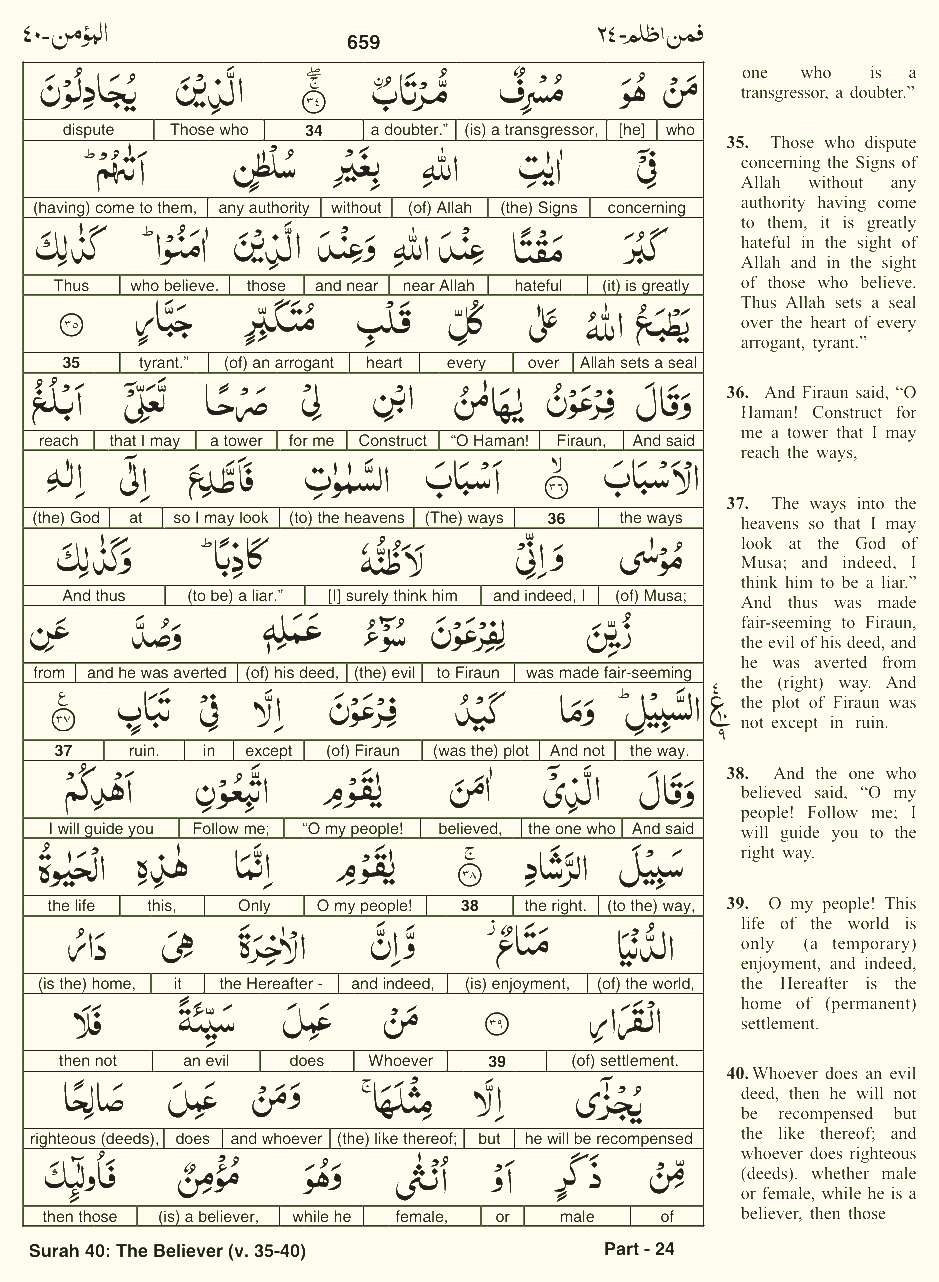 المؤمن-٤٠
659
فمن اظلم-٢٤
مَنْ هُوَ مُسْرِفٌ مُّرْتَابٌ ۚۖ ﴿٣٤﴾ الَّذِيْنَ يُجَادِلُوْنَ
who [he] (is) a transgressor, a doubter.” 34 Those who dispute
فِيْٓ اٰيٰتِ اللّٰهِ بِغَيْرِ سُلْطٰنٍ اَتٰىهُمْ ؕ
concerning (the) Signs (of) Allah without any authority (having) come to them,
كَبُرَ مَقْتًا عِنْدَ اللّٰهِ وَعِنْدَ الَّذِيْنَ اٰمَنُوْا ؕ كَذٰلِكَ
(it) is greatly hateful near Allah and near those who believe. Thus
يَطْبَعُ اللّٰهُ عَلٰى كُلِّ قَلْبِ مُتَكَبِّرٍ جَبَّارٍ ﴿٣٥﴾
Allah sets a seal over every heart (of) an arrogant tyrant.” 35
وَقَالَ فِرْعَوْنُ يٰهَامٰنُ ابْنِ لِيْ صَرْحًا لَّعَلِّيْٓ اَبْلُغُ
And said Firaun, “O Haman! Construct for me a tower that I may reach
الْاَسْبَابَ ۙ ﴿٣٦﴾ اَسْبَابَ السَّمٰوٰتِ فَاَطَّلِعَ اِلٰٓى اِلٰهِ
the ways 36 (The) ways (to) the heavens so I may look at (the) God
مُوْسٰى وَاِنِّيْ لَاَظُنُّهٗ كَاذِبًا ؕ وَكَذٰلِكَ
(of) Musa; and indeed, I [I] surely think him (to be) a liar.” And thus
زُيِّنَ لِفِرْعَوْنَ سُوْٓءُ عَمَلِهٖ وَصُدَّ عَنِ
was made fair-seeming to Firaun (the) evil (of) his deed, and he was averted from
السَّبِيْلِ ؕ وَمَا كَيْدُ فِرْعَوْنَ اِلَّا فِيْ تَبَابٍ ﴿٣٧﴾ ع
the way. And not (was the) plot (of) Firaun except in ruin. 37
وَقَالَ الَّذِيْٓ اٰمَنَ يٰقَوْمِ اتَّبِعُوْنِ اَهْدِكُمْ
And said the one who believed, “O my people! Follow me; I will guide you
سَبِيْلَ الرَّشَادِ ۚ ﴿٣٨﴾ يٰقَوْمِ اِنَّمَا هٰذِهِ الْحَيٰوةُ
(to the) way, the right. 38 O my people! Only this, the life
الدُّنْيَا مَتَاعٌ ؗ وَّاِنَّ الْاٰخِرَةَ هِيَ دَارُ
(of) the world, (is) enjoyment, and indeed, the Hereafter - it (is the) home,
الْقَرَارِ ﴿٣٩﴾ مَنْ عَمِلَ سَيِّئَةً فَلَا
(of) settlement. 39 Whoever does an evil then not
يُجْزٰٓى اِلَّا مِثْلَهَا ۚ وَمَنْ عَمِلَ صَالِحًا
he will be recompensed but (the) like thereof; and whoever does righteous (deeds),
مِّنْ ذَكَرٍ اَوْ اُنْثٰى وَهُوَ مُؤْمِنٌ فَاُولٰٓئِكَ
of male or female, while he (is) a believer, then those
one who is a
transgressor, a doubter.”
35. Those who dispute
concerning the Signs of
Allah without any
authority having come
to them, it is greatly
hateful in the sight of
Allah and in the sight
of those who believe.
Thus Allah sets a seal
over the heart of every
arrogant, tyrant.”
36. And Firaun said, “O
Haman! Construct for
me a tower that I may
reach the ways,
37. The ways into the
heavens so that I may
look at the God of
Musa; and indeed, I
think him to be a liar.”
And thus was made
fair-seeming to Firaun,
the evil of his deed, and
he was averted from
the (right) way. And
the plot of Firaun was
not except in ruin.
38. And the one who
believed said, “O my
people! Follow me; I
will guide you to the
right way.
39. O my people! This
life of the world is
only (a temporary)
enjoyment, and indeed,
the Hereafter is the
home of (permanent)
settlement.
40. Whoever does an evil
deed, then he will not
be recompensed but
the like thereof; and
whoever does righteous
(deeds). whether male
or female, while he is a
believer, then those
Surah 40: The Believer (v. 35-40)
Part - 24